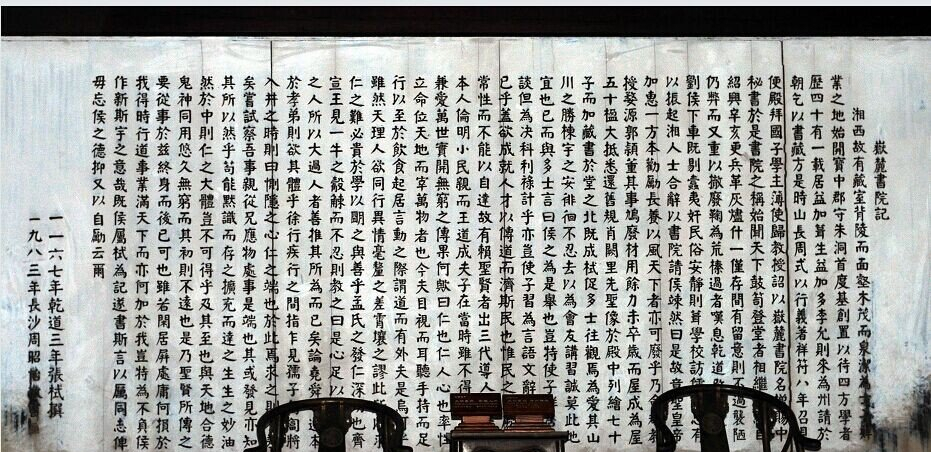 嶽麓書院記
湘西故有藏室背陵而面壑木茂而泉潔為士
業之地始開寶中郡守朱洞首度基創置以待四方學者
歷四十有一載居益加葺生益加多李允則來為州請於
朝乞以書藏方是時山長周式以行義著祥符八年召見
便殿拜國子學主簿使歸教授詔以嶽麓書院名增賜中
秘書於是書院之稱始聞天下鼓笥登堂者相繼自
紹興辛亥更兵革灰燼什一僅存間有留意則不過襲陋
仍弊而又重以撤廢鞠為荒榛過者嘆息乾道
劉侯下車既剔蠹夷奸民俗安靜則葺學校訪有
以振起湘人士合辭以書院請侯竦然曰是故章聖皇帝
加惠一方本勸勵長養以風天下者亦可廢乎乃命
授婺源郭穎董其事鳩廢材用餘力未卒歲而屋成為屋
五十楹大抵悉還舊規肖闕里先聖像於殿中列繪七十
子而加藏書於堂之北既成栻促多士往觀焉為愛其山
川之勝棟宇之安徘徊不忍去以為會友講習誠莫此地
宜也已而與多士言曰侯之為是舉也豈特使子
但為決科利祿計乎亦豈使子習為言語文辭
已乎蓋欲成就人才以傳道而濟斯民也惟民之
常性而不能以自達故有賴聖賢者出三代導人
本人倫明小民親而王道成夫子在當時雖不得
兼愛萬世實開無窮之傳果何歟曰仁也仁人心也率性
立命位天地而宰萬物者也今夫目視而耳聽手持而足
行以至於飲食起居言動之際謂道而有外夫是烏
雖然天理人欲同行異情毫釐之差霄壤之謬此求
仁之難必貴於學以明之與善乎孟氏之發仁深切也齊
宣王見一牛之觳觫而不忍則教之曰是心足以
之人所以大過人者善推其所為而已矣論堯舜本
於孝弟則欲其體乎徐行疾行之間指乍見孺子匍匐將
入井之時則曰惻隱之心仁之端也於此焉求之則
矣嘗試察吾事親從兄應物處事是端也其或發見亦知
其所以然乎苟能默識而存之擴充而達之生生之妙油
然於中則仁之大體豈不可得乎及其至也與天地合德
鬼神同用悠久無窮而其初則不遠也是乃聖賢所傳之
而從事於茲終身而後已可也雖若閑居屏處庸何損於
我得時行道事業滿天下而亦何加於我豈特為不負侯
作新斯宇之意哉既侯屬栻為記遂書斯言以厲同志俾
毋忘侯之德抑又以自勵云爾
一一六七年乾道三年張栻撰
一九八三年長沙周昭怡敬書